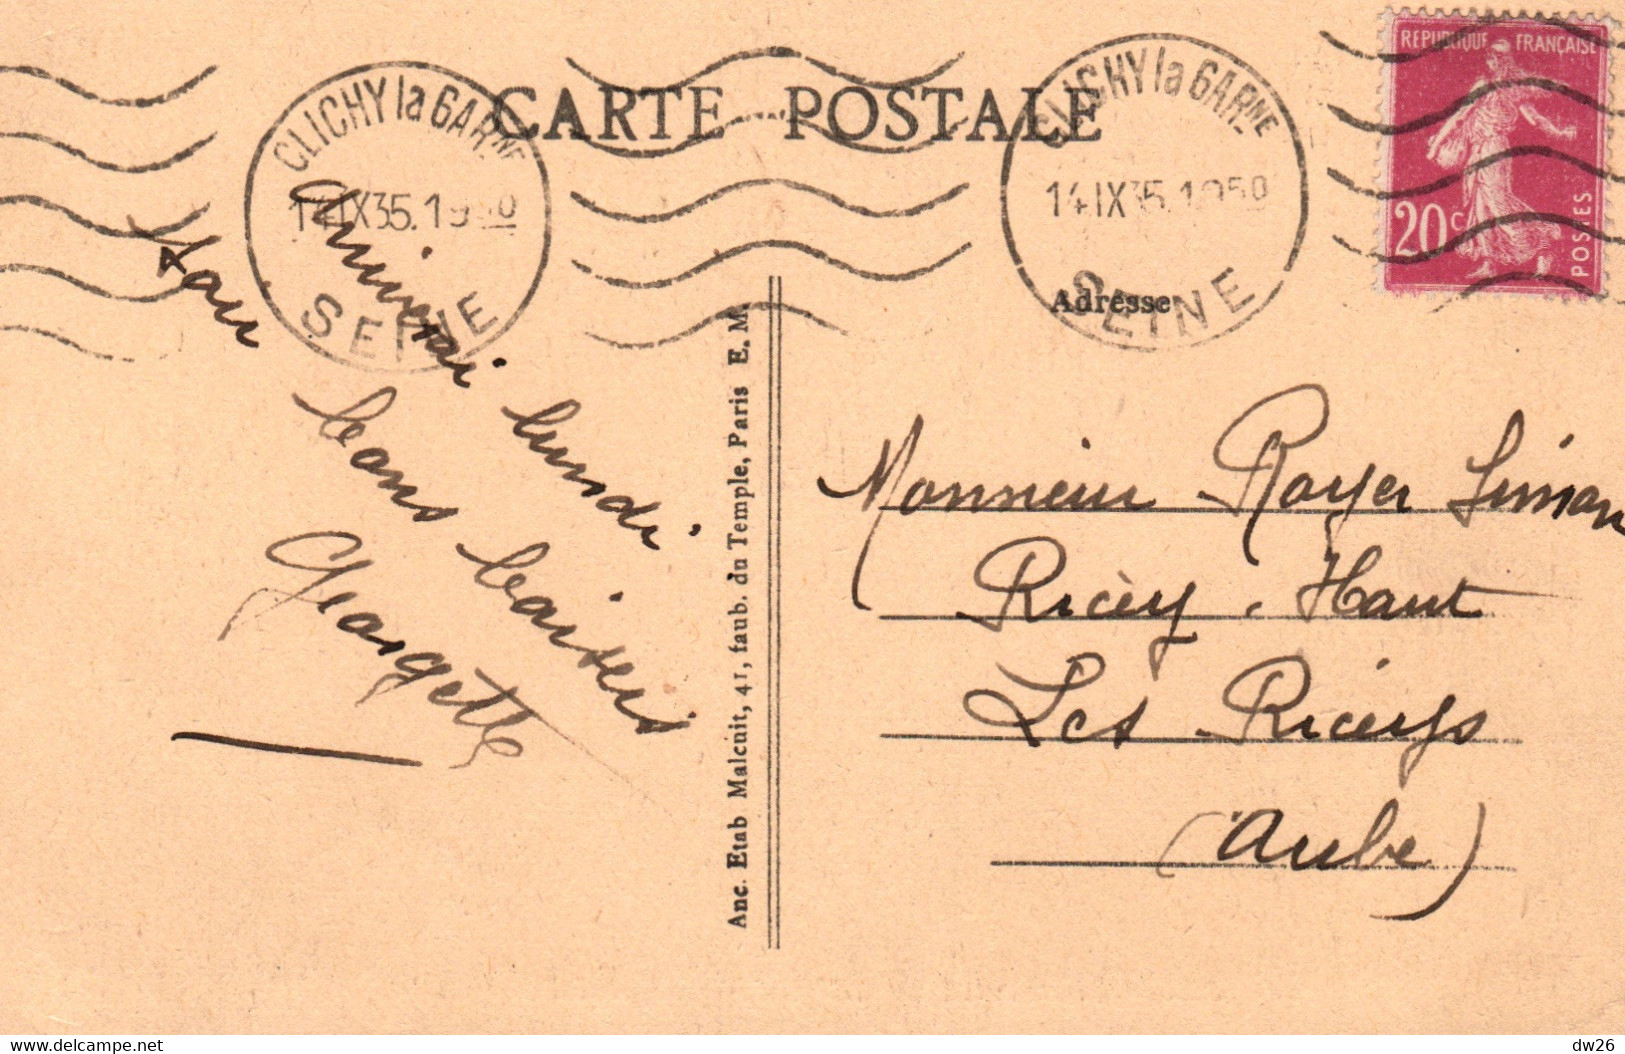 CARTE POSTALE
CLICHY la GARNE
14 IX 35. 19 50
SEINE
CLICHY la GARNE
14 IX 35. 19 50
SEINE
REPUBLIQUE FRANÇAISE
20c
POSTES
Adresse
arriverai lundi
bons baisers
Georgette
Anc. Etab Malcuit, 41, faub. du Temple, Paris E. M.
Monsieur Royer Simon
Ricey-Haut
Les Riceys
(Aube)
https://www.delcampe.net
dw26